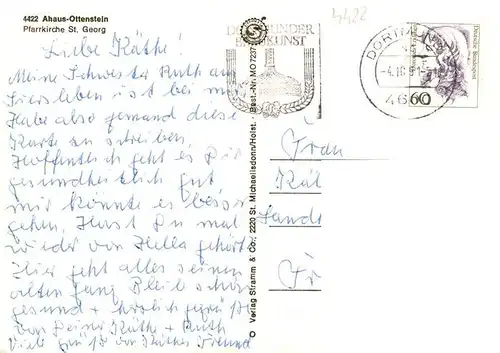 4422 Ahaus-Ottenstein
Pfarrkirche St. Georg
Liebe Käthe!
Meine Schwester Ruth aus
ist bei mir
Habe also jemand diese
Karte zu schreiben.
Hoffentlich geht es Dir
gesundheitlich gut,
mir könnte es besser
gehen. Hast Du mal
wieder von Hella gehört
Hier geht alles seinen
alten Gang. Bleib schön
gesund + herzlich gegrüßt
von Deiner Käthe + Ruth
Viele Grüße von Käthes Freund
© Verlag Stramm & Co., 2220 St. Michaelisdonn/Holst. · Best.-Nr. MO 7237
4422
DORTMUNDER
BRAUKUNST
DORTMUND
4600
60
Deutsche Bundespost
Frau
Kät
Lands